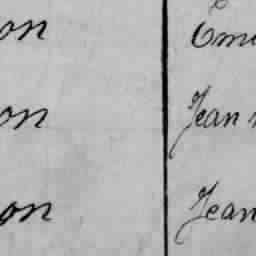 on Eme
on Jean
on Jean